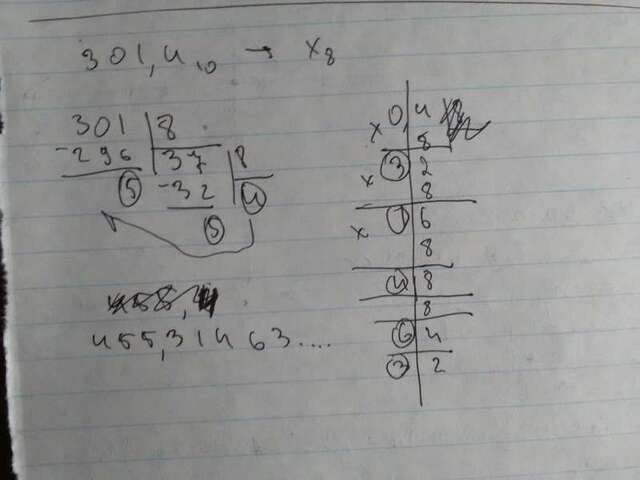 301,4₁₀ → x₈
301 | 8
-296 | 37 | 8
5 -32 | 4
5
455,31463....
x 0, | 4
8
3 | 2
x 8
1 | 6
x 8
4 | 8
8
6 | 4
3 | 2